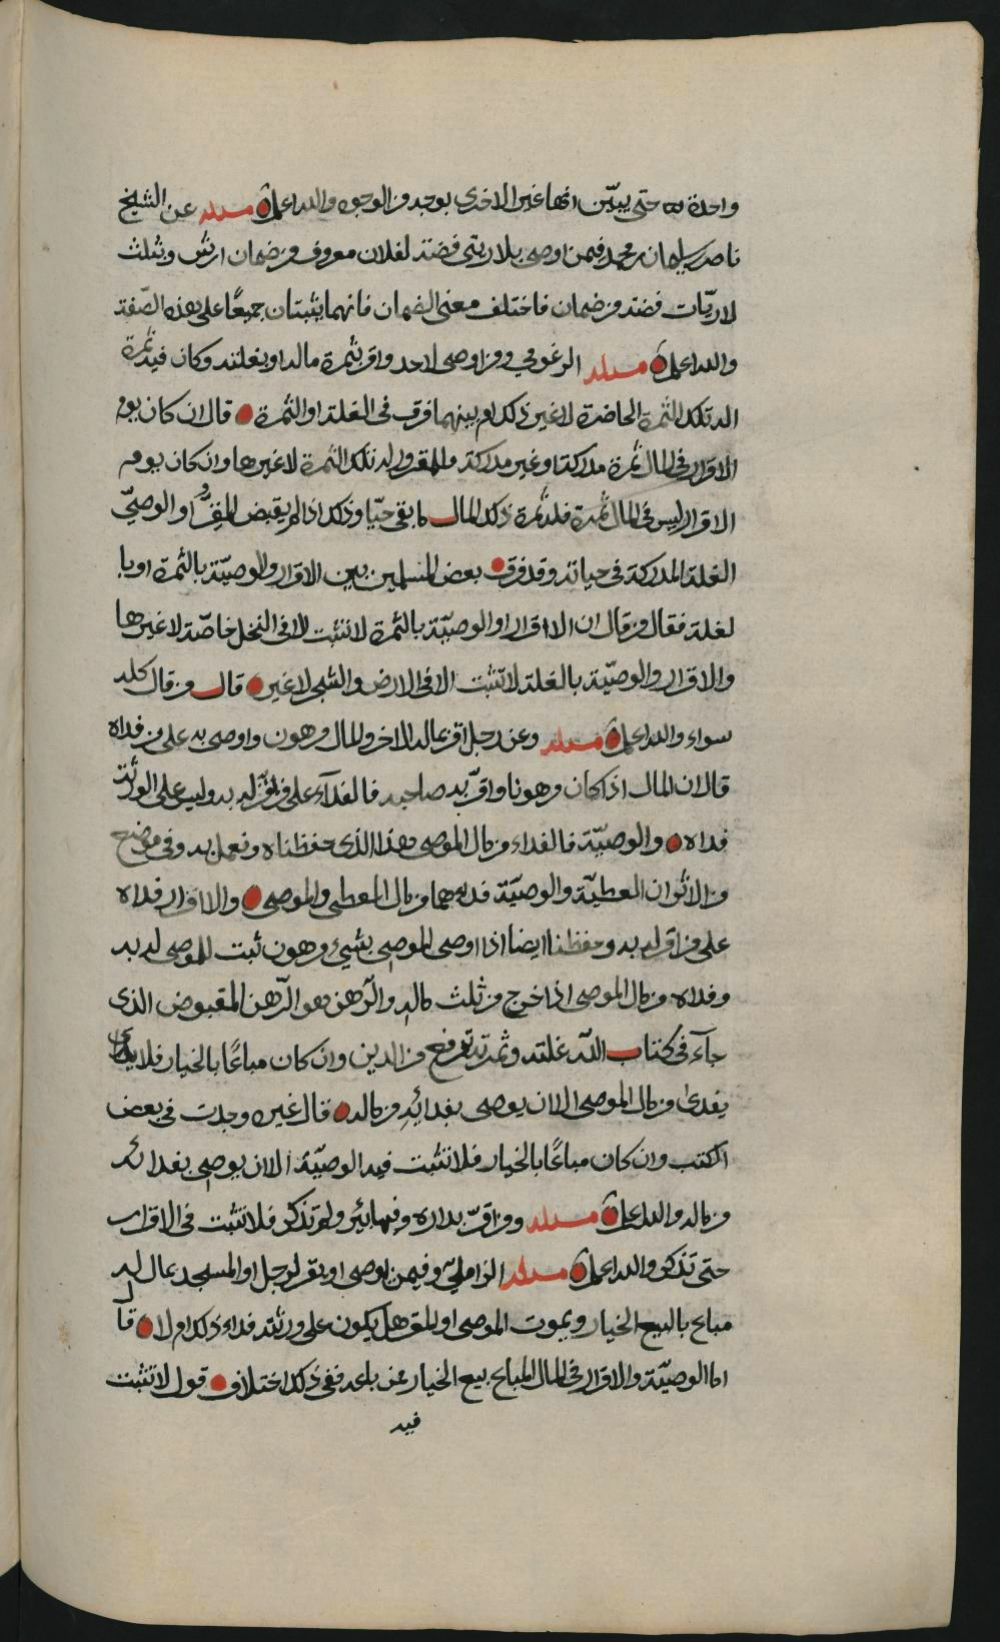 واحدة حتى يبيّن انها غير الاخرى بوجه من الوجوه والله اعلم مسئله عن الشيخ
ناصر بن سليمان بن محمد فيمن اوصى بلاريتي فضة لفلان معروف من ضمان ارش وبثلث
لاريّات فضة من ضمان فاختلف معنى الضمان فانهما يثبتان جميعًا على هذه الصّفة
والله اعلم مسئله الزغومي ومن اوصى لاحد واقر بثمرة ماله او بغلته وكان فيه ثمرة
اله تلك الثمرة الحاضرة لا غير ذلك ام بينهما فرق في الغلة او الثمرة قال ان كان يوم
الاقرار في المال ثمرة مدركة او غير مدركة فللمقر له تلك الثمرة لا غيرها وان كان يوم
الاقرار ليس في المال ثمرة فله ثمرة ذلك المال ما بقي حيّا وذلك اذا لم يقبض المقرّ او الوصيّ
الغلة المدركة في حياته وقد فرق بعض المسلمين بين الاقرار والوصيّة بالثمرة او با
لغلة فقال من قال ان الاقرار او الوصيّة بالثمرة لا تثبت الا في النخل خاصّة لا غيرها
والاقرار والوصيّة بالغلة لا تثبت الا في الارض والشجر لا غير قال ومن قال كله
سواء والله اعلم مسئله وعن رجل اقر بماله لاخر والمال مرهون واوصى به على من فداه
قال ان المال اذا كان مرهونا واقرّ به صاحبه فالفدآء على من اقرّ له به وليس على الورثة
فداه والوصيّة فالفداء من مال الموصي وهذا الذي حفظناه ونعمل به وفي موضع
من الاثر ان العطيّة والوصيّة فداهما من مال المعطي والموصي والاقرار فداه
على من اقر له به وحفظنا ايضا اذا اوصى الموصي بشيء مرهون ثبت للموصى له به
وفداه من مال الموصي اذا خرج من ثلث ماله والرّهن هو الرّهن المقبوض الذي
جآء في كتاب اللّه غلته وثمرته ترفع من الدين وان كان مباعًا بالخيار فلا
يفدى من مال الموصي الا ان يوصي بفدائه من ماله قال غيره وجدت في بعض
الكتب وان كان مباعًا بالخيار فلا تثبت فيه الوصيّة الا ان يوصي بفدائه
من ماله والله اعلم مسئله ومن اقرّ بداره وفيها بئر ولم تذكر فلا تثبت في الاقرار
حتى تذكر والله اعلم مسئله الزامليّ وفيمن اوصى او يقر لرجل او المسجد بمال له
مباع بالبيع الخيار ويموت الموصي او المقر هل يكون على ورثته فداء ذلك ام لا قال
اما الوصيّة والاقرار في المال المباع بيع الخيار عن بلعه ففي ذلك اختلاف قول لا تثبت
فيه